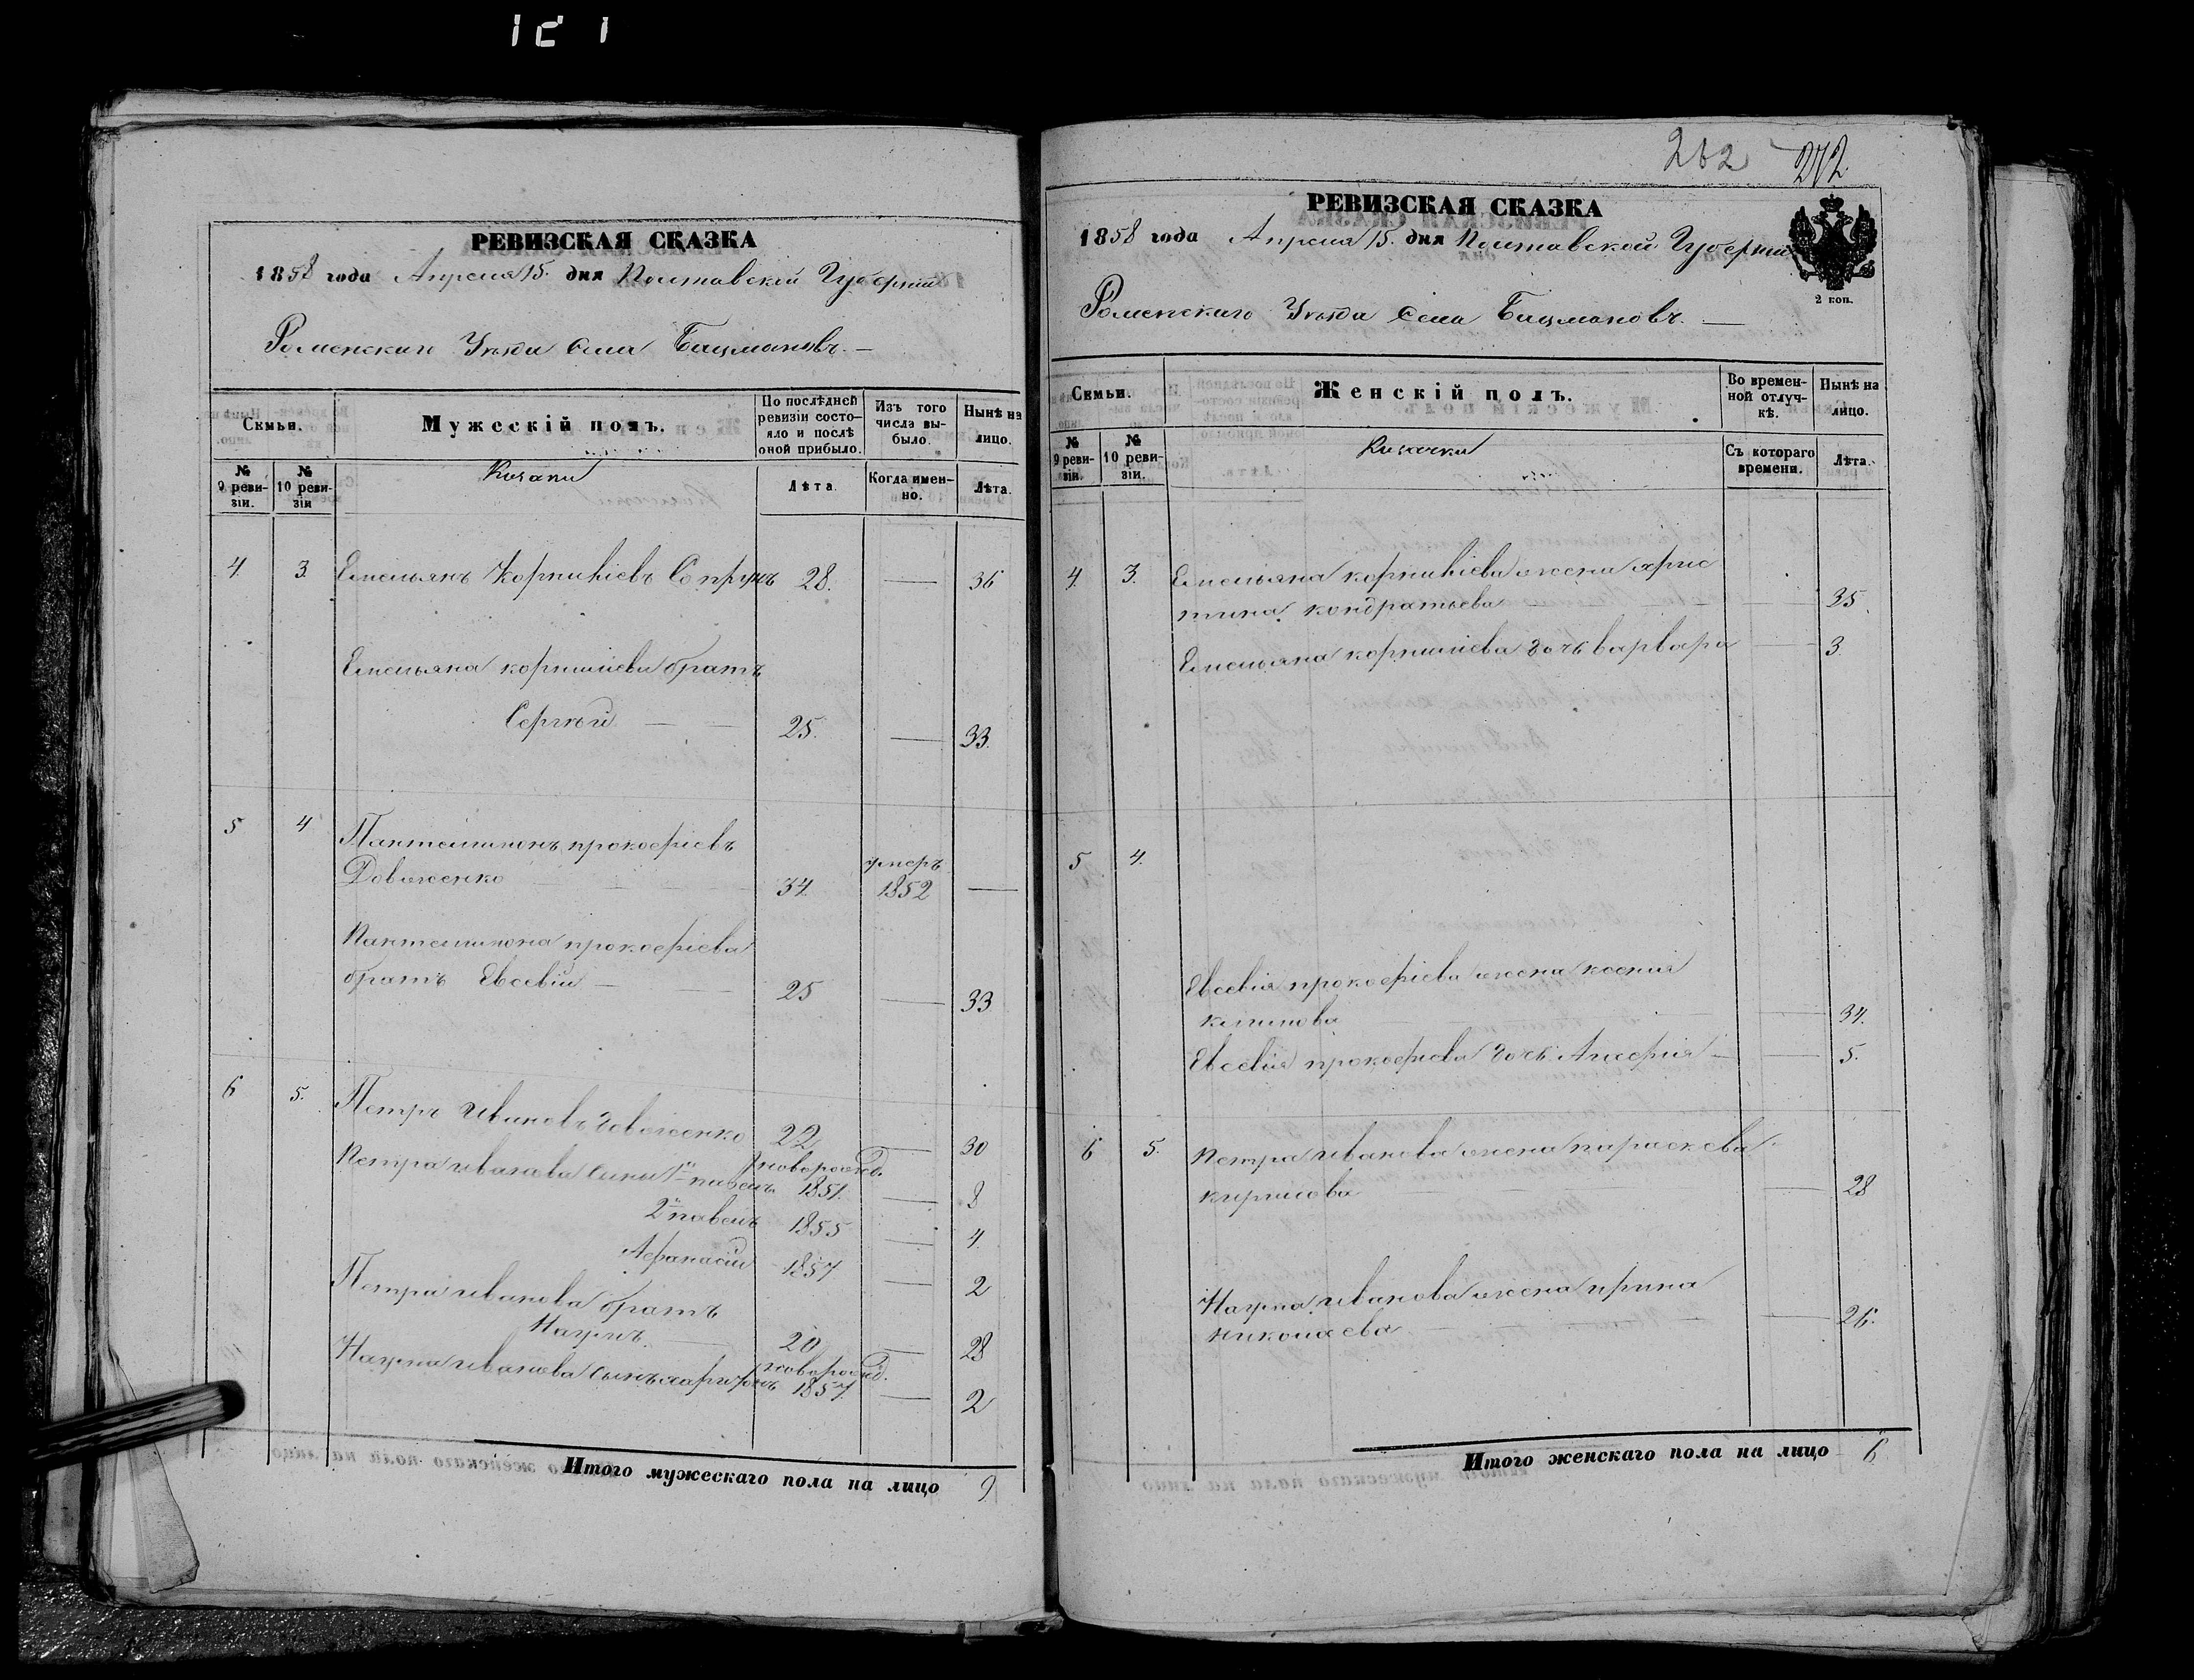 262 272
РЕВИЗСКАЯ СКАЗКА
1858 года Апреля 15. дня Полтавской Губерніи
Роменскаго Уѣзда Села Бацмановъ. —
Скмьи.
Мужескій полъ.
По послѣдней ревизіи состояло и послѣ оной прибыло.
Изъ того числа выбыло.
Нынѣ на лицо.
№ 9 ревизіи.
№ 10 ревизіи
Козаки
Лѣта
Когда именно.
Лѣта.
4. 3. Емельянъ Корнилiевъ Сопрунъ 28. — 36
Емельяна корнилiева братъ
Сергѣй — — 25. — 33.
5 4 Пантелимонъ прокофіевъ
Довженко — 34. умеръ 1852 —
Пантелимона прокофіева
братъ Евсевій — — 25 — 33
6 5. Петръ Ивановъ довженко 22 — 30
Петра иванова сыны 1й новорожд. 1851. — 8
2й павелъ 1855 — 4.
Афанасій 1857 — 2
Петра иванова братъ
Наумъ. — 20 — 28
Наума иванова сынъ харитонъ новорожд. 1857. — 2
Итого мужескаго пола на лицо 9
РЕВИЗСКАЯ СКАЗКА
1858 года Апреля 15. дня Полтавской Губерніи
2 коп.
Роменскаго Уѣзда Села Бацмановъ. —
Скмьи.
Женскій полъ.
Во временной отлучкѣ.
Нынѣ на лицо.
№ 9 ревизіи.
№ 10 ревизіи.
Козачки
Съ котораго времени.
Лѣта.
4. 3. Емельяна корнилiева жена хрис
тина кондратьева — — — 35.
Емельяна корнилiева дочь варвара — 3.
5 4.
Евсевія прокофіева жена ксенія
климова — 34.
Евсевія прокофіева дочь — — 5.
6 5. Петра иванова жена параскева
кирилова — — 28
Наума иванова жена ирина
николаева — — — 26.
Итого женскаго пола на лицо 6